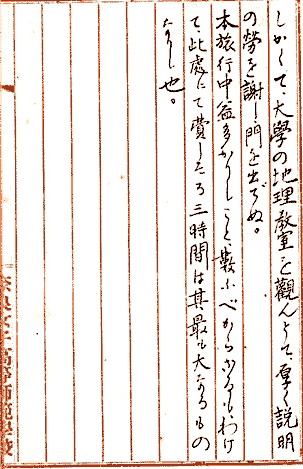 しかくて、大學の地理教室を觀んとて、厚く説明
の勞を謝し門を出でぬ。
本旅行中益多かりしこと數ふべからざるも、わけ
て、此處にて費したる三時間は其最も大なるもの
なりし也。
奈良女子高等師範學校